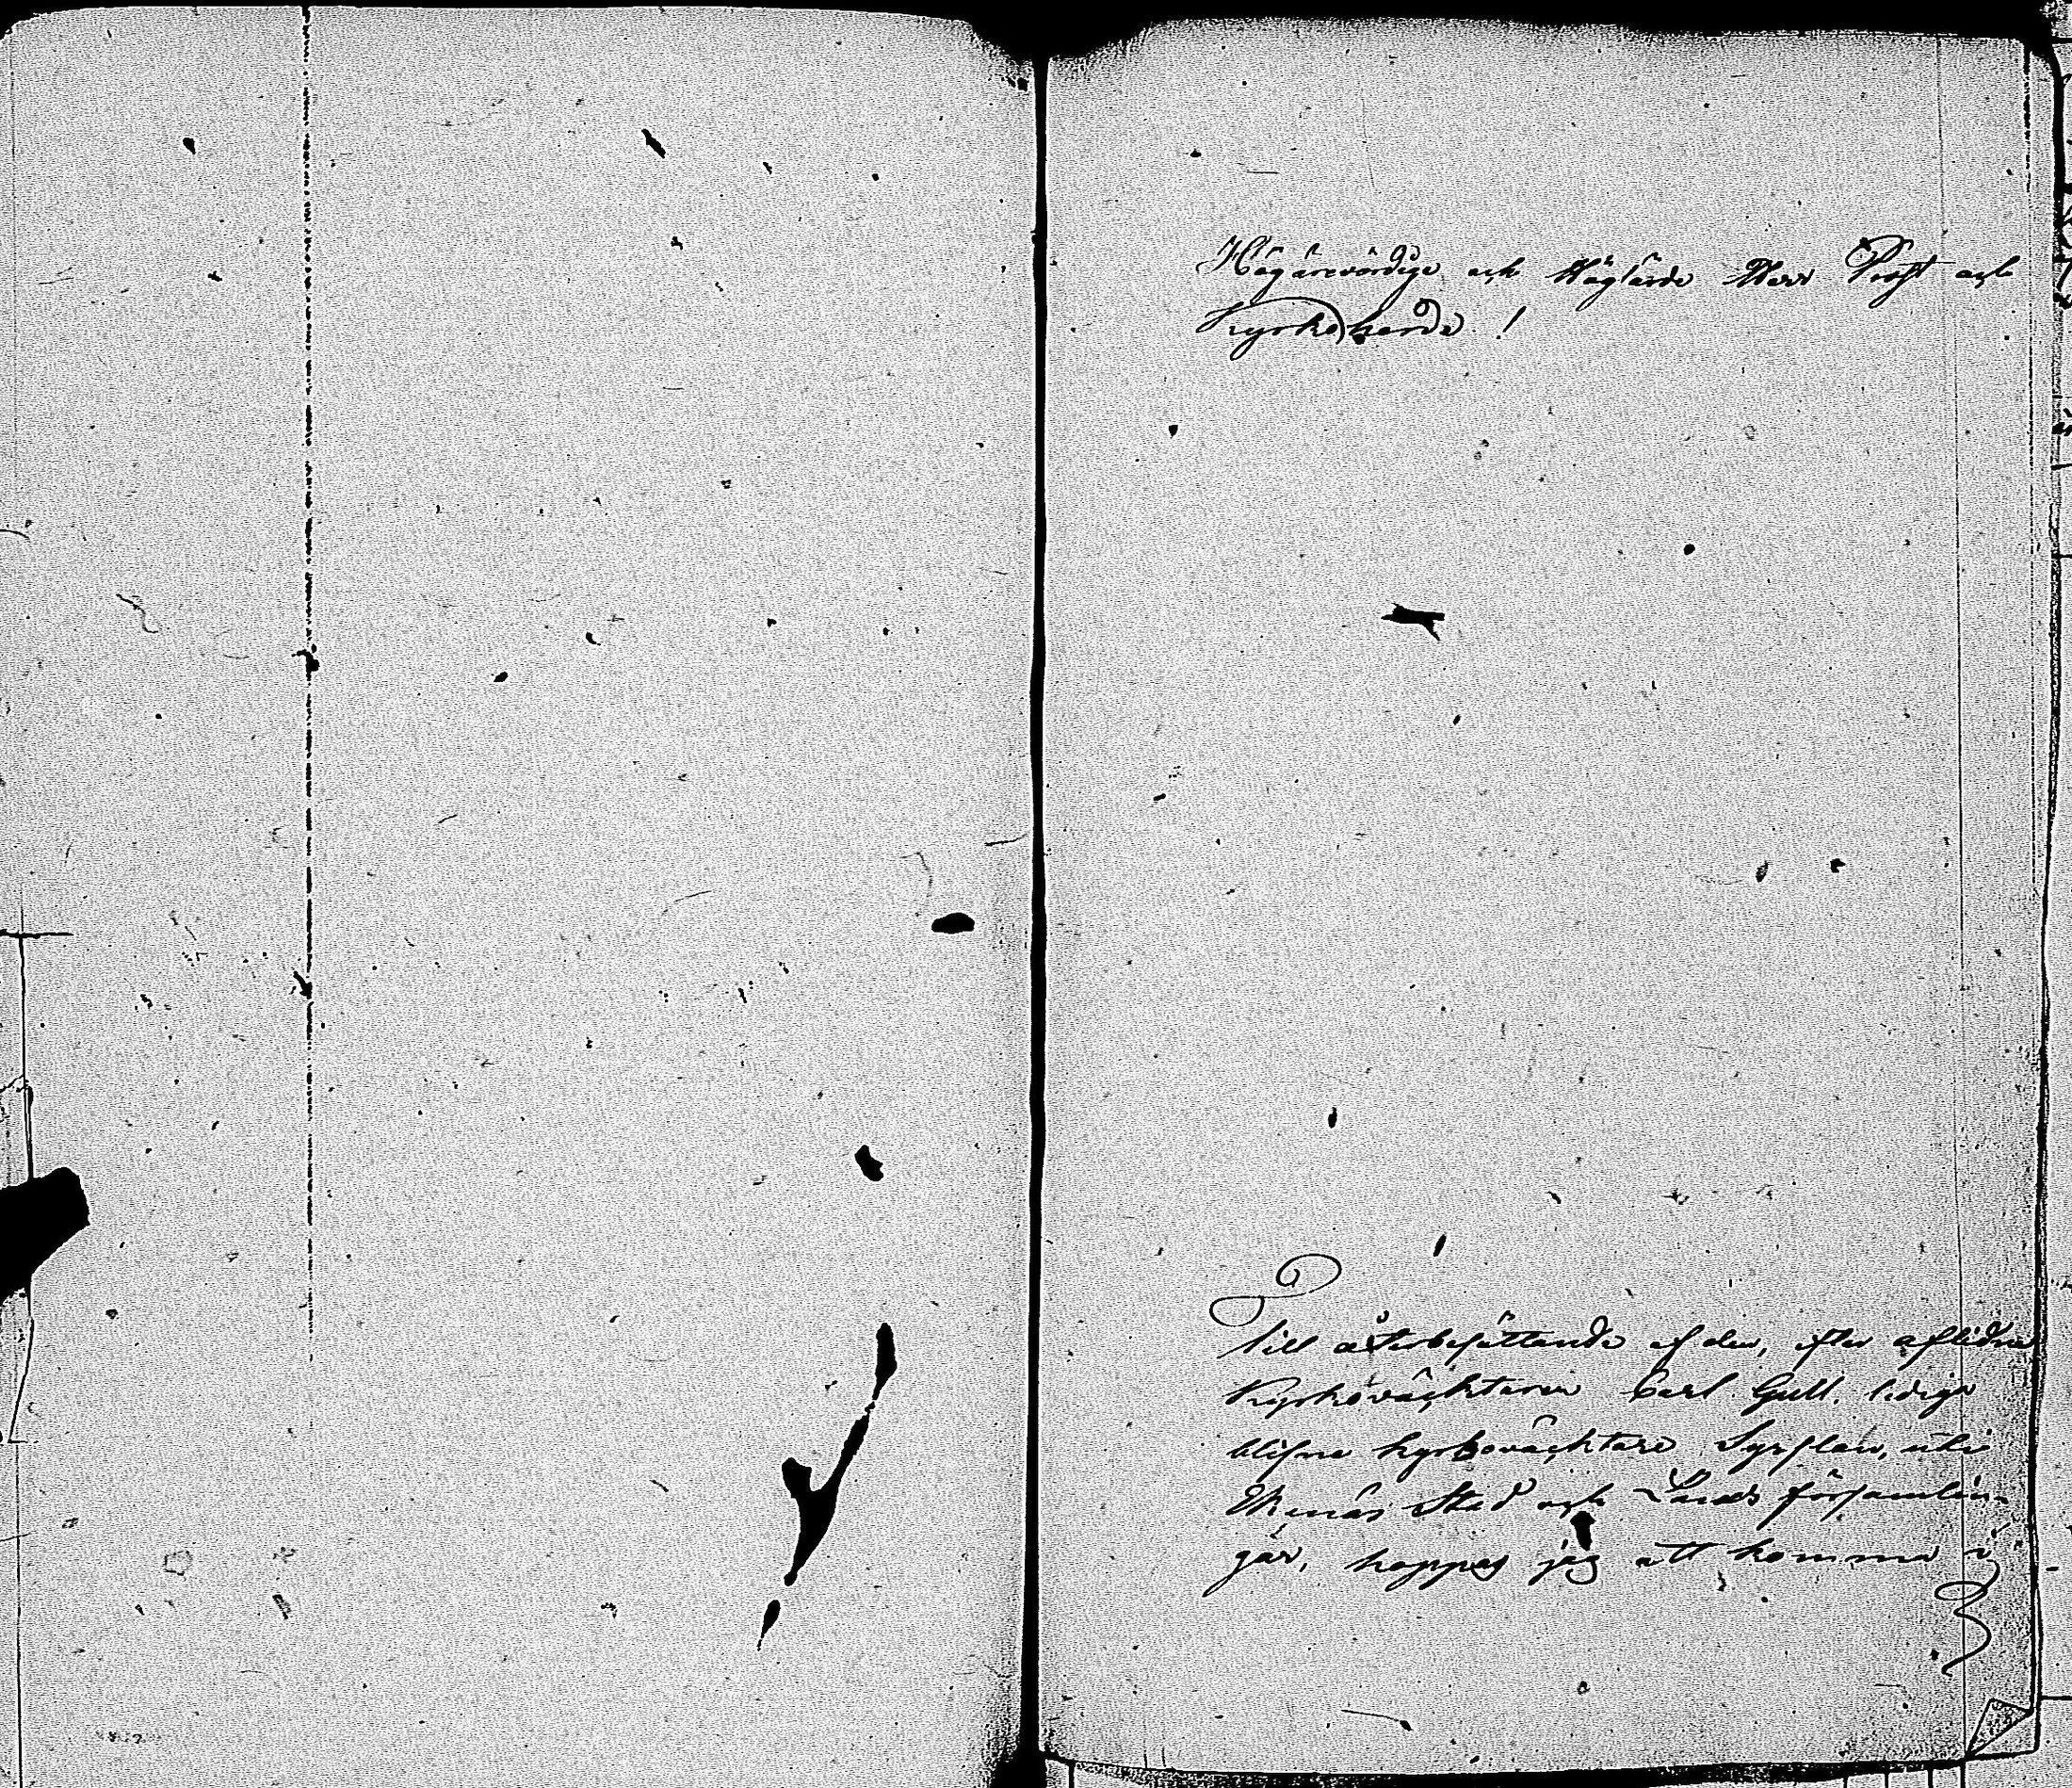 Högärevördige och Höglärde Herr Prost och
Kyrkoherde !
Till återbesättande af den, efter aflidne
Kyrkoväcktaren Carl Gull. lediga
blifne kyrkoväcktare Sysslan, uti
Ekenäs Stad och Lands församlin-
gar, hoppas jag att komma i